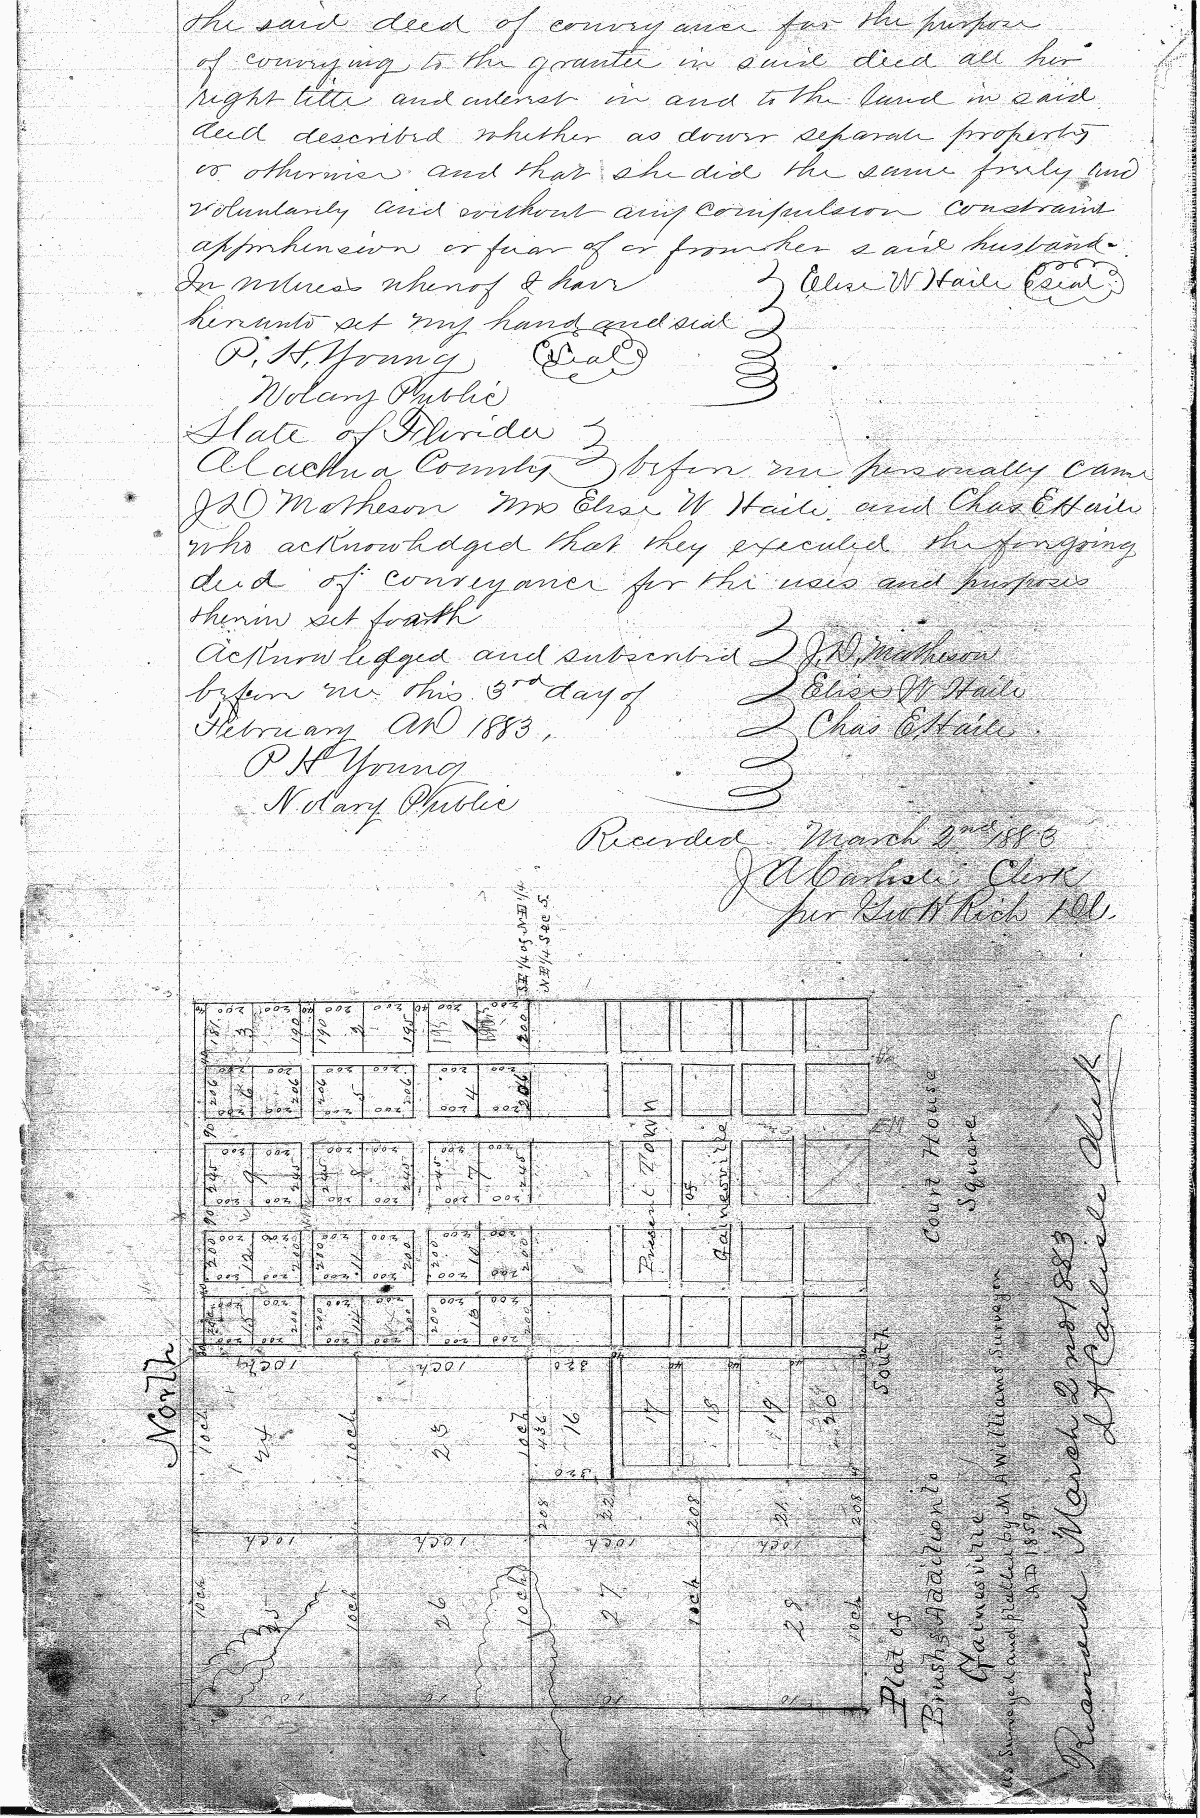 the said deed of conveyance for the purpose
of conveying to the grantee in said deed all her
right title and interest in and to the land in said
deed described whether as dower separate property
or otherwise and that she did the same freely and
voluntarily and without any compulsion constraint
apprehension or fear of or from her said husband.
In witness whereof I have
hereunto set my hand and seal
Elise W Haile (seal)
P. H. Young (Seal)
Notary Public
State of Florida
Alachua County before me personally came
J D Matheson Mrs Elise W Haile and Chas E Haile
who acknowledged that they executed the foregoing
deed of conveyance for the uses and purposes
therein set foarth
Acknowledged and subscribed
before me this 3rd day of
February AD 1883.
J. D. Matheson
Elise W Haile
Chas E Haile.
P H Young
Notary Public
Recorded March 2nd 1883
J A Carlisle Clerk
per Geo H Rich D C.
SE 1/4 of NE 1/4
NE 1/4 Sec 5
North
3 2 1
6 5 4
9 8 7
12 11 10
15 14 13
Present Town
of
Gainesville
Court House
Square
South
24 23 16 17 18 19 20
22 21
25 26 27 28
Plat of
Brush's Addition to
Gainesville
as Surveyed and platted by M A Williams Surveyor
AD 1859
Received March 2nd 1883
J A Carlisle Clerk